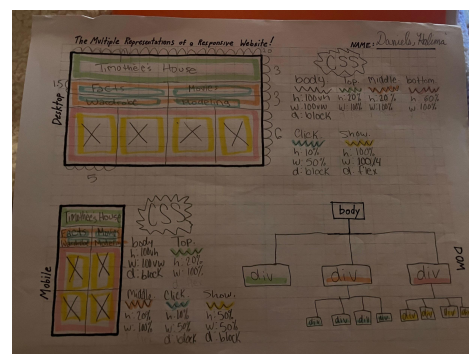 The Multiple Representations of a Responsive Website!
NAME: Daniela, Halima
Desktop
Timothée's House
Facts
Movies
Wardrobe
15
3
3
C
5
CSS
body
h: 100vh
w: 100vw
d: block
Top
h: 20%
w: 100%
Middle
h: 20%
w: 100%
bottom
h: 60%
w: 100%
Click
h: 10%
w: 50%
d: block
Show
h: 100%
w: 100/4
d: flex
Mobile
Timothée's House
CSS
body
h: 100vh
w: 100vw
d: block
Top
h: 20%
w: 100%
Middle
h: 20%
w: 100%
Click
h: 10%
w: 50%
d: block
Show
h: 50%
w: 50%
d: block
DOM
body
div
div
div
div
div
div
div
div
div
div
div